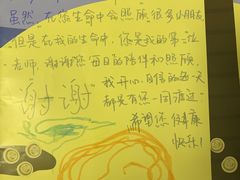 虽然 在您生命中会照顾很多小朋友
但是在我的生命中，您是我的第一位
老师，谢谢您 每日的陪伴和照顾
我开心、自信的每一天
都是有您一同渡过
谢谢
希望您 健康
快乐！